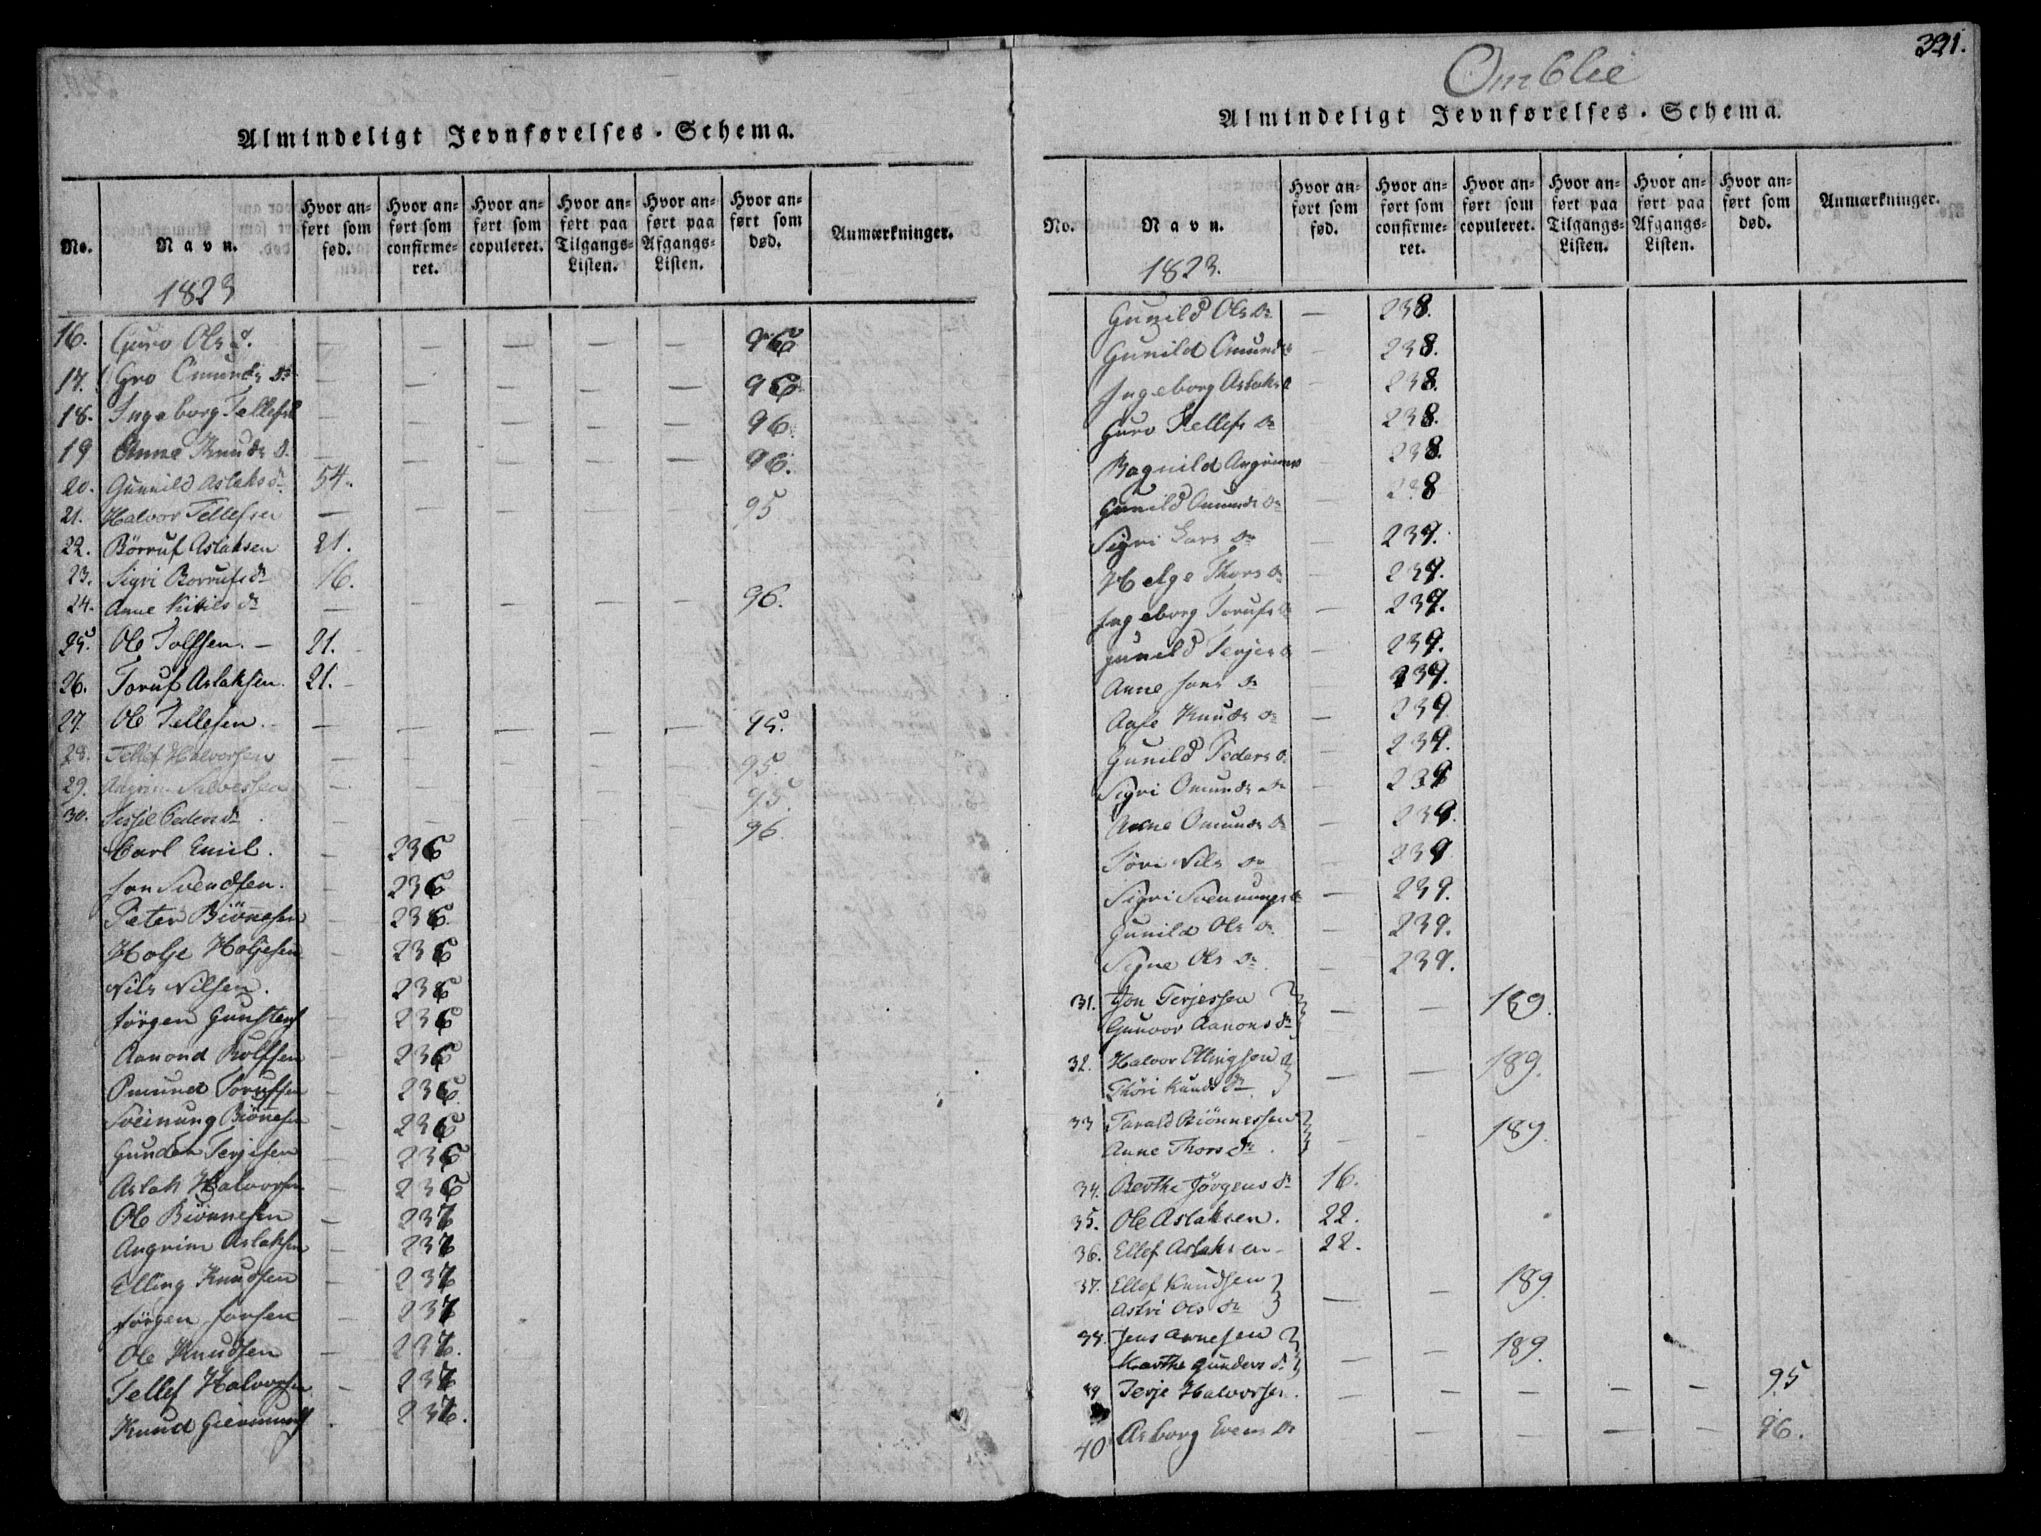 Almindeligt Jevnførelses-Schema.
No. Navn. Hvor anført som fød. Hvor anført som confirmeret. Hvor anført som copuleret. Hvor anført paa Tilgangs-Listen. Hvor anført paa Afgangs-Listen. Hvor anført som død. Anmærkninger.
1823
16. Guro Ols D. — — — — — 96
17. Gro Omunds Dr — — — — — 96
18. Ingeborg Tellefs — — — — — 96.
19 Anne Knuds D. — — — — — 96.
20. Gunnild Aslaks Dr 54.
21. Halvor Tellefsen — — — — — 95
22. Börruf Aslaksen 21.
23. Sigri Borrufs dr 16.
24. Anne Kittils dr — — — — — 96.
25. Ole Tolfsen. — 21.
26. Toruf Aslaksen. 21. -
27. Ole Tellefsen. — — — — — 95.
28. Tellef Halvorsen — — — — — 95.
29. Angrim Salvessen — — — — — 95.
30. Sissel Peders dr — — — — — 96.
Carl Emil. — 236
Jon Svendsen. — 236
Peter Biönnesen — 236
Holje Holjesen — 236
Nils Nilsen. — 236
Jörgen Gunstens — 236
Aanond Rolfsen — 236
Omund Torufsen — 236.
Sveinung Biönnesen — 236
Gunder Terjesen — 236
Aslak Halvorsen — 236
Ole Biönnesen — 237
Angrim Aslaksen — 237
Elling Knudsen — 237
Jörgen Jonsen — 237
Ole Knudsen — 237.
Tellef Halvorsen — 237
Knud Giermunds . 237.
391.
Omblie
Almindeligt Jevnførelses-Schema.
No. Navn. Hvor anført som fød. Hvor anført som confirmeret. Hvor anført som copuleret. Hvor anført paa Tilgangs-Listen. Hvor anført paa Afgangs-Listen. Hvor anført som død. Anmærkninger.
1823.
Gunild Ols Dr — 238.
Gunild Omunds — 238.
Ingeborg Aslaks — 238.
Guro Tellefs Dr 238.
Ragnild Angrims — 238.
Gunild Omunds Dr — 238
Sigri Lars Dr — 239.
Helge Thors Dr — 239.
Ingeborg Torufs — 239.
Gunild Terjes D — 239.
Anne Jons Dr 239.
Aase Knuds Dr — 239
Gunild Peders D. — 239.
Sigri Omunds Dr — 239
Anne Omunds Dr — 239.
Töre Nils Dr — 239
Sigri Svennungs D — 239.
Gunild Ols Dr — 239.
Signe Ols Dr — 239.
31. Jon Terjessen
Gunvor Aanons dr — — 189.
32. Halvor Ellingsen
Thöri Knuds dr — — 189.
33 Tarald Biönnessen
Anne Thors dr — - 189.
34. Berthe Jörgens dr 16.
35. Ole Aslaksen. 22.
36. Ellef Aslaksen- 22.
37. Ellef Knudsen
Astri Ols dr — - 189.
38. Jens Arnesen
Karthe Gunders dr — — 189.
39 Terje Halvorsen. — - - - - 95
40 Asborg Evens Dr — — — — — 96.